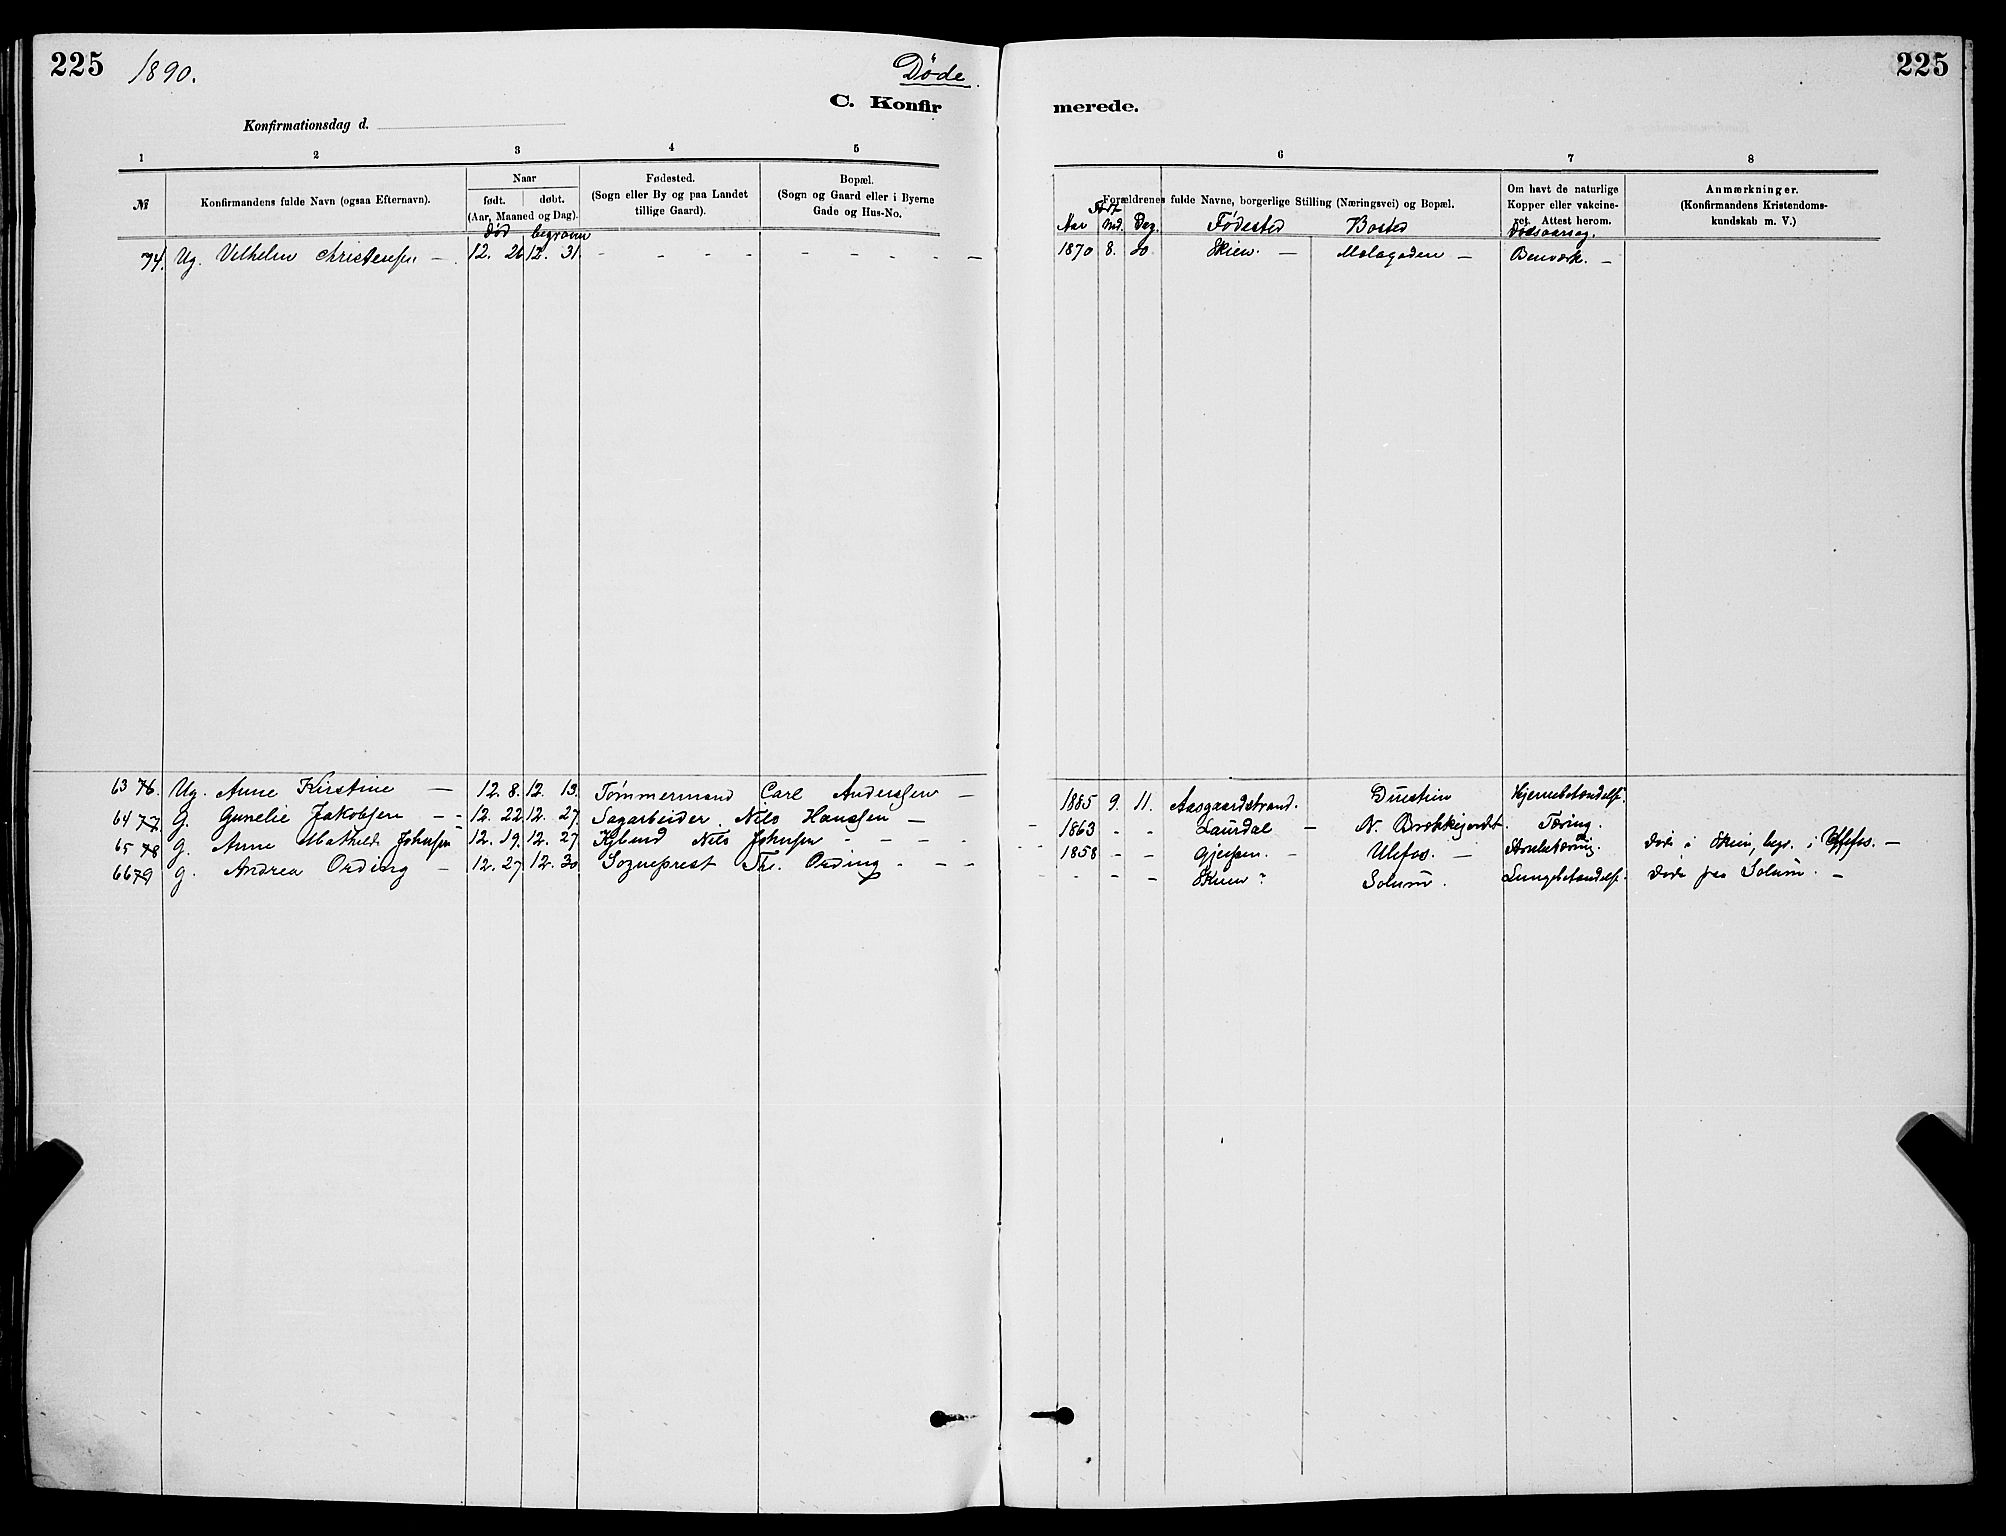 225 1890. Døde. 225
C. Konfirmerede.
Konfirmationsdag d.
1 2 3 4 5 6 7 8
№ Konfirmandens fulde Navn (ogsaa Efternavn).
Naar født. døbt. (Aar, Maaned og Dag).
død begravn
Fødested. (Sogn eller By og paa Landet tillige Gaard).
Bopæl. (Sogn og Gaard eller i Byerne Gade og Hus-No.
Forældrenes fulde Navne, borgerlige Stilling (Næringsvei) og Bopæl.
Aar Md. Dag. Fødested Bosted
Om havt de naturlige Kopper eller vakcineret. Attest herom.
Dødsaarsag.
Anmærkninger. (Konfirmandens Kristendomskundskab m. V.)
74. Ug. Vilhelm Christensen — 12. 26 12. 31. - - - - - - - - 1870 8. 20 Skien. — Molagaden — Benværk. —
63 76. Ug. Anne Kirstine — 12. 8. 12. 13. Tømmermand Carl Andersen — 1885 9. 11. Aasgaardstrand. Duestien Hjernebetændelse.
64 77. G. Gunelie Jakobsen - - 12. 22 12. 27. Sagarbeider. Nils Hanssen — 1863 - - Laurdal — N. Brækkejordet. Tæring.
65 78 g. Anne Mathilde Johnsen 12. 19. 12. 27. Nils Johnsen - - - - 1858 - - Gjerpen. — Ulefos. — Døde i Skien, begr. i —
66 79 g. Andrea Ording — 12. 27 12. 30. Sogneprest Th. Ording - - - - - - - Skien? Solum. Lungebetændelse. Døde paa Solum. —